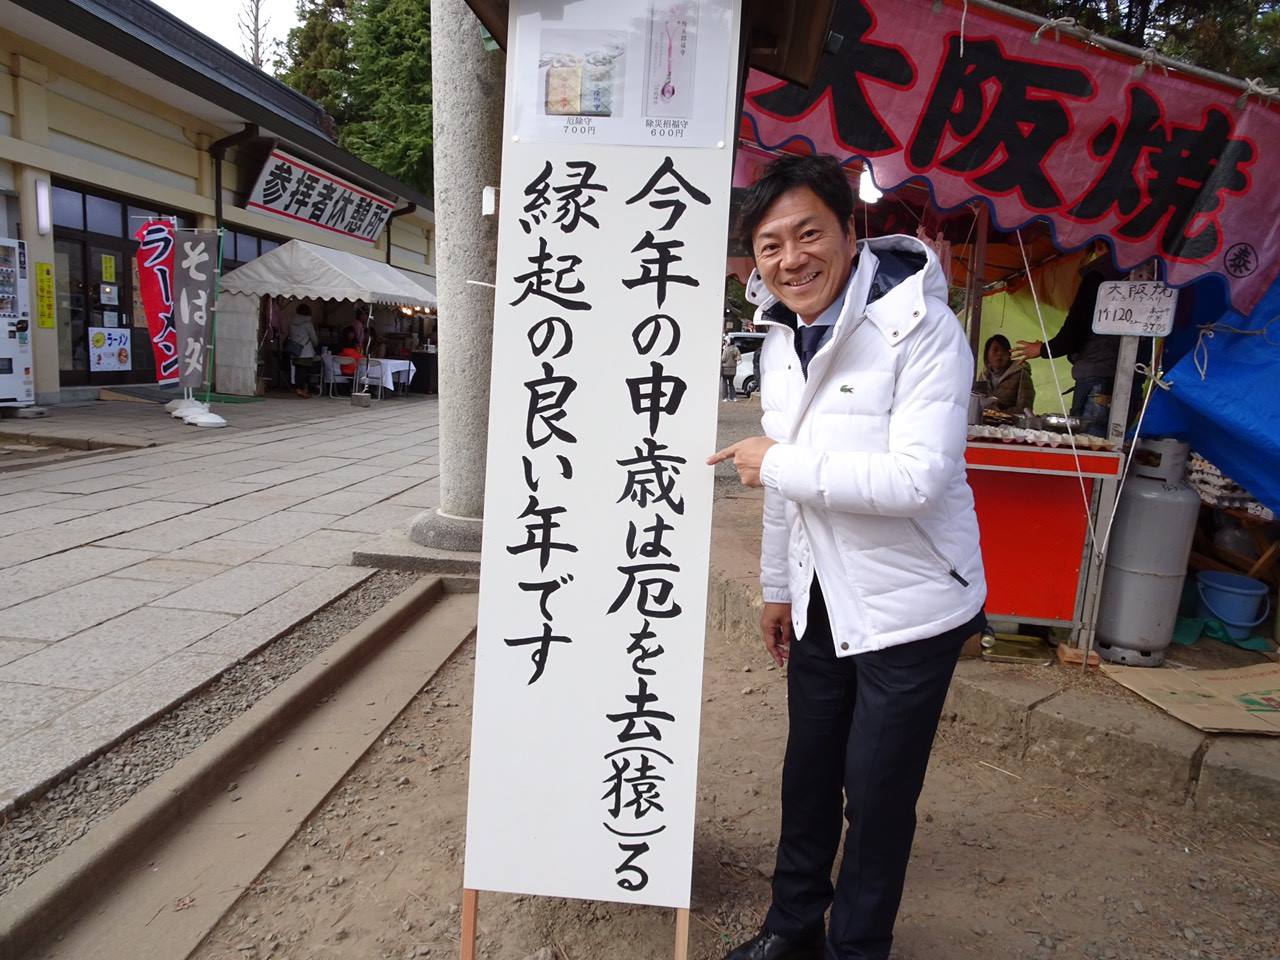 厄除守
700円
除災招福守
600円
今年の申歳は厄を去(猿)る
縁起の良い年です
参拝者休憩所
ラーメン
そば
ラーメン
大阪焼
大阪焼